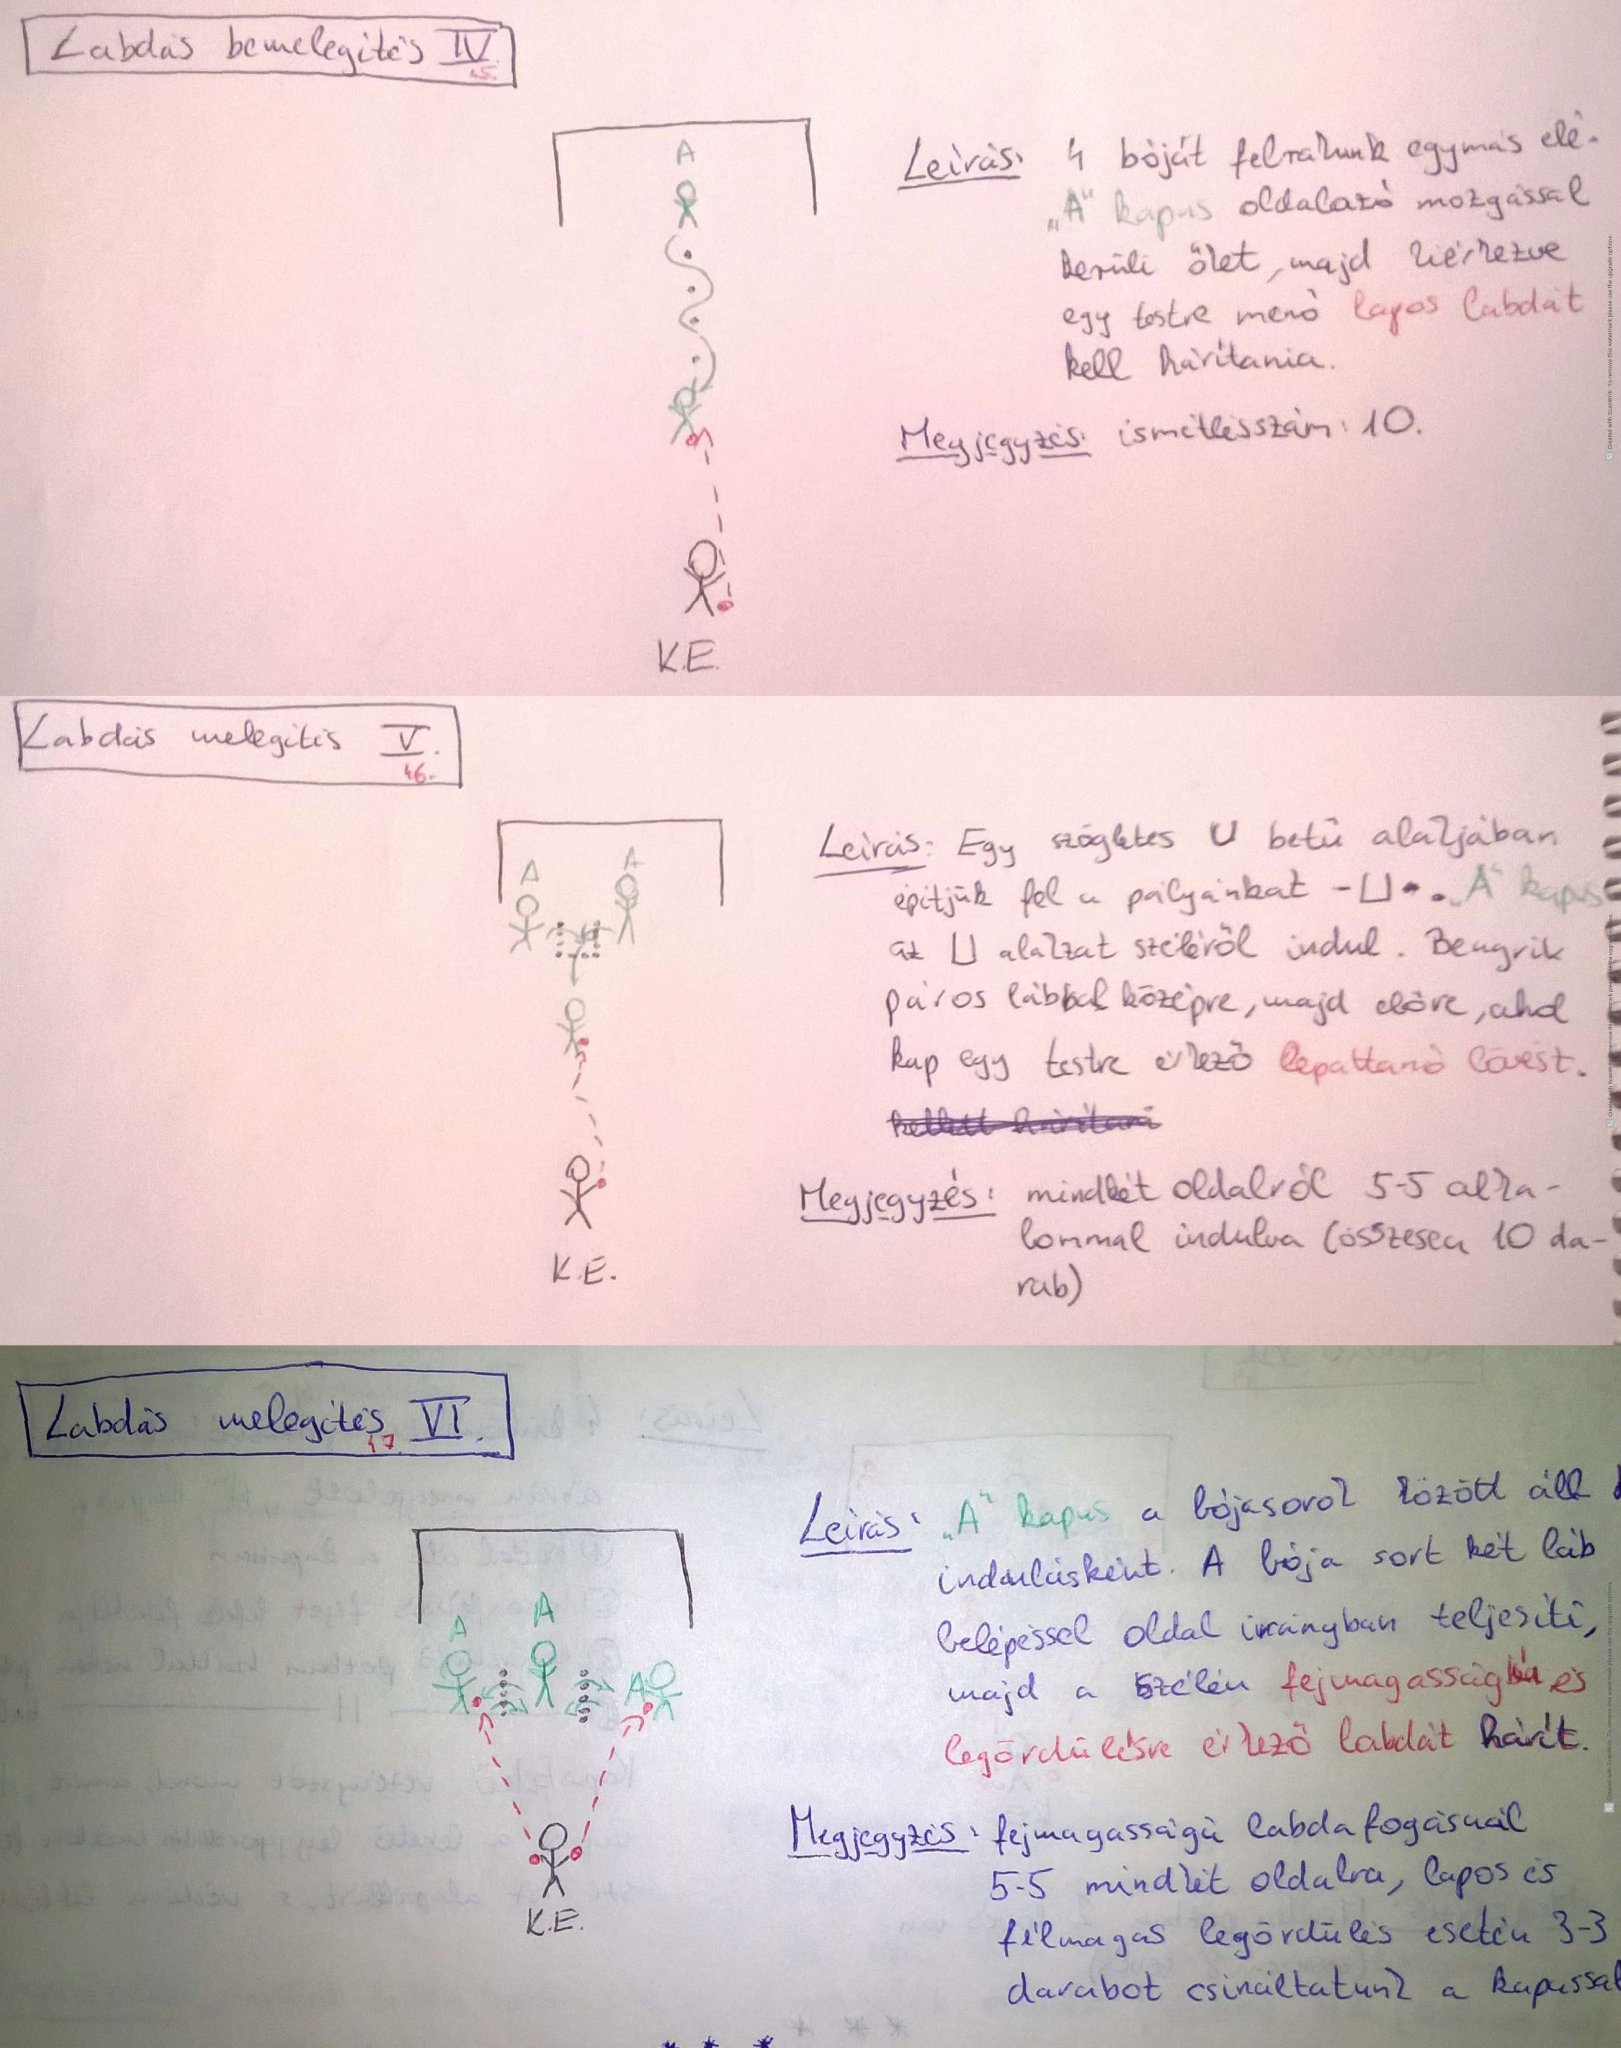 Labdás bemelegítés IV.
45.
A
Leírás: 4 bóját felrakunk egymás elé.
„A" kapus oldalazó mozgással
kerüli őket, majd kiérkezve
egy testre menő lapos labdát
kell hárítania.
Megjegyzés: ismétlésszám: 10.
K.E.
Labdás melegítés V.
46.
A A
Leírás: Egy szögletes U betű alakjában
építjük fel a pályánkat - U - . „A" kapus
az U alakzat széléről indul. Beugrik
páros lábbal középre, majd előre, ahol
kap egy testre érkező lepattanó lövést.
Megjegyzés: mindkét oldalról 5-5 alka-
lommal indulva (összesen 10 da-
rab)
K.E.
Labdás melegítés VI.
47.
A A A
Leírás: „A" kapus a bójasorok között áll
indulásként. A bója sort két láb
belépéssel oldal irányban teljesíti,
majd a szélén fejmagasságba és
legördülésre érkező labdát hárít.
Megjegyzés: fejmagasságú labda fogásnál
5-5 mindkét oldalra, lapos és
félmagas legördülés esetén 3-3
darabot csináltatunk a kapussal
K.E.
* * *